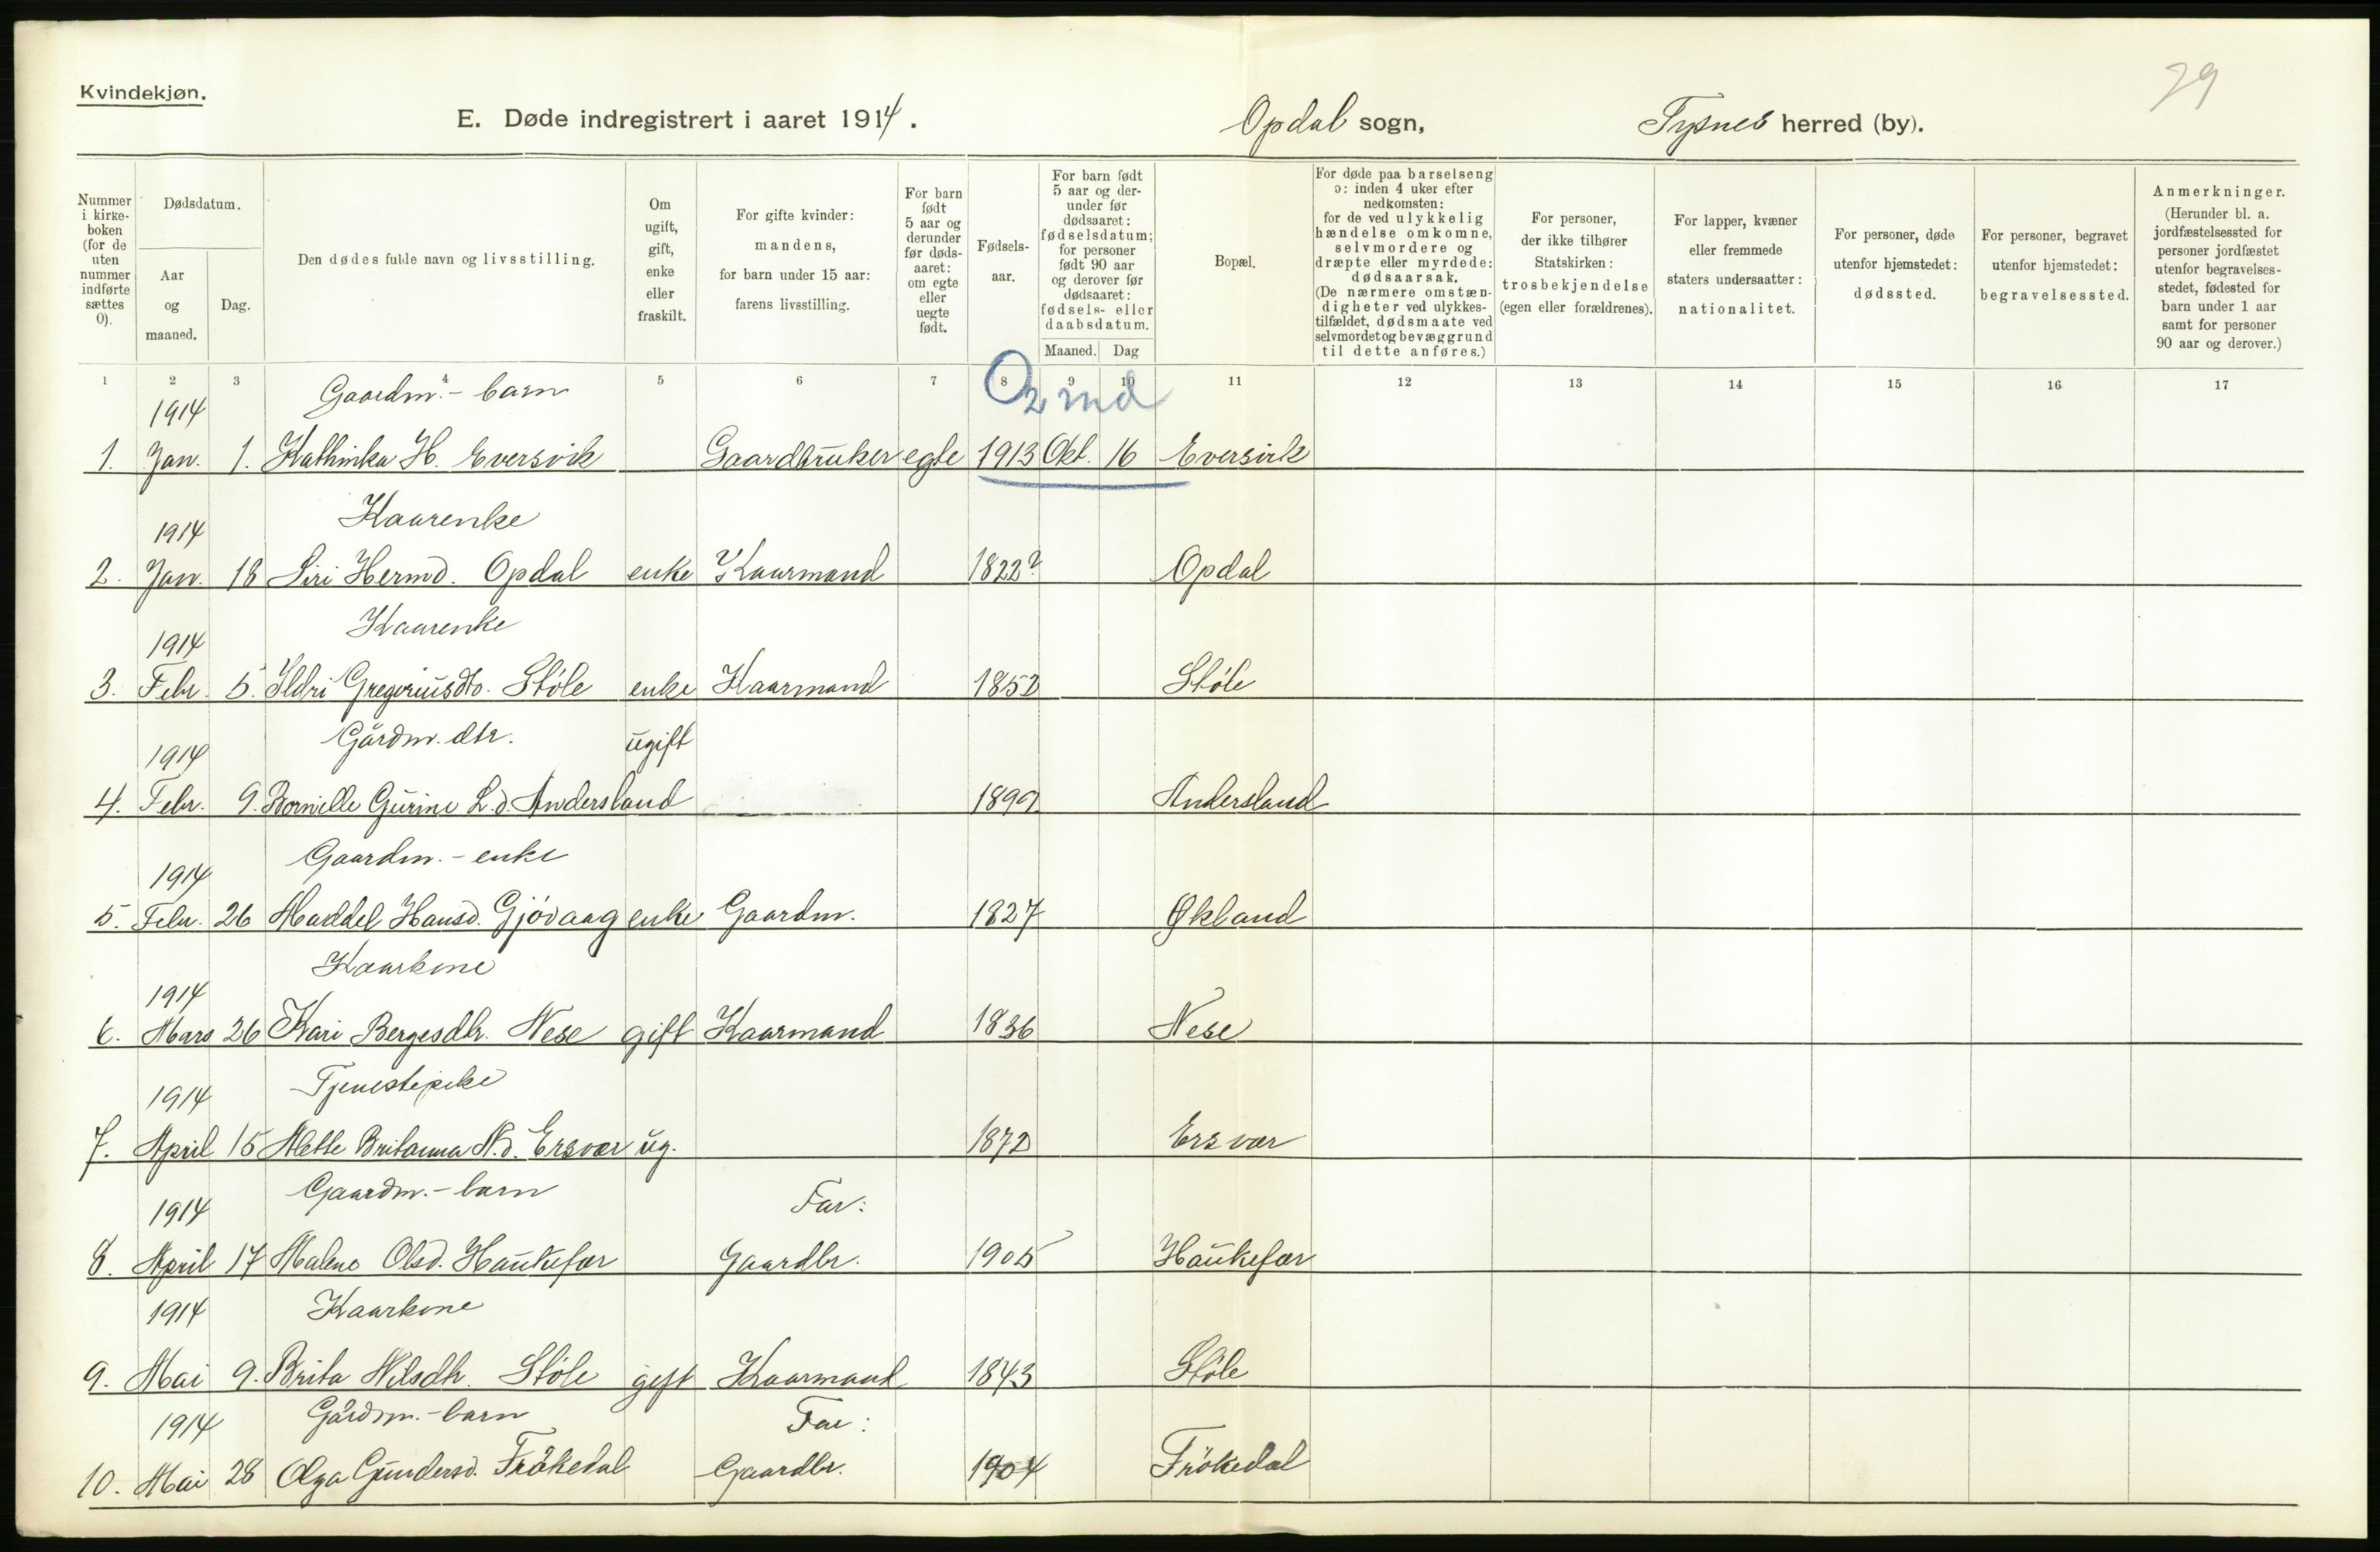 Kvindekjøn.
29
E. Døde indregistrert i aaret 1914. Opdal sogn, Tysnes herred (by).
Nummer i kirke-boken (for de uten nummer indførte sættes 0).
Dødsdatum.
Aar og maaned.
Dag.
Den dødes fulde navn og livsstilling.
Om ugift, gift, enke eller fraskilt.
For gifte kvinder: mandens, for barn under 15 aar: farens livsstilling.
For barn født 5 aar og derunder før døds-aaret: om egte eller uegte født.
Fødsels-aar.
For barn født 5 aar og der-under før dødsaaret: fødselsdatum; for personer født 90 aar og derover før dødsaaret: fødsels- eller daabsdatum.
Maaned. Dag
Bopæl.
For døde paa barselseng ɔ: inden 4 uker efter nedkomsten: for de ved ulykkelig hændelse omkomne, selvmordere og dræpte eller myrdede: dødsaarsak. (De nærmere omstæn-digheter ved ulykkes-tilfældet, dødsmaate ved selvmordet og bevæggrund til dette anføres.)
For personer, der ikke tilhører Statskirken: trosbekjendelse (egen eller forældrenes).
For lapper, kvæner eller fremmede staters undersaatter: nationalitet.
For personer, døde utenfor hjemstedet: dødssted.
For personer, begravet utenfor hjemstedet: begravelsessted.
Anmerkninger. (Herunder bl. a. jordfæstelsessted for personer jordfæstet utenfor begravelses-stedet, fødested for barn under 1 aar samt for personer 90 aar og derover.)
1 2 3 4 5 6 7 8 9 10 11 12 13 14 15 16 17
1914 Gaardm.- barn 0 2 md
1. Jan. 1. Kathinka H. Eversvik Gaardbruker egte 1913 Okt. 16 Eversvik
1914 Kaarenke
2. Jan. 18 Siri Hermd. Opdal enke Kaarmand 1822? Opdal
1914 Kaarenke
3. Febr. 5. Ildri Gregoriusdtr. Støle enke Kaarmand 1852 Støle
1914 Gårdm. dtr. ugift
4. Febr. 9. Bornille Gurine L.d. Andersland 1899 Andersland
1914 Gaardm.- enke
5. Febr. 26 Maddel Hansd. Gjövaag enke Gaardm. 1827 Økland
1914 Kaarkone
6. Mars 26 Kari Bergesdtr. Nese gift Kaarmand 1836 Nese
1914 Tjenestepike
7. April 15 Mette Britanna N.d. Ersvær ug. 1872 Ersvær
1914 Gaardm.- barn Far:
8. April 17 Malene Olsd. Haukefær Gaardbr. 1905 Haukefær
1914 Kaarkone
9. Mai 9. Brita Nilsdtr. Støle gift Kaarmand 1843 Støle
1914 Gårdm.- barn Far:
10. Mai 28 Olga Gundersd. Frökedal Gaardbr. 1904 Frökedal